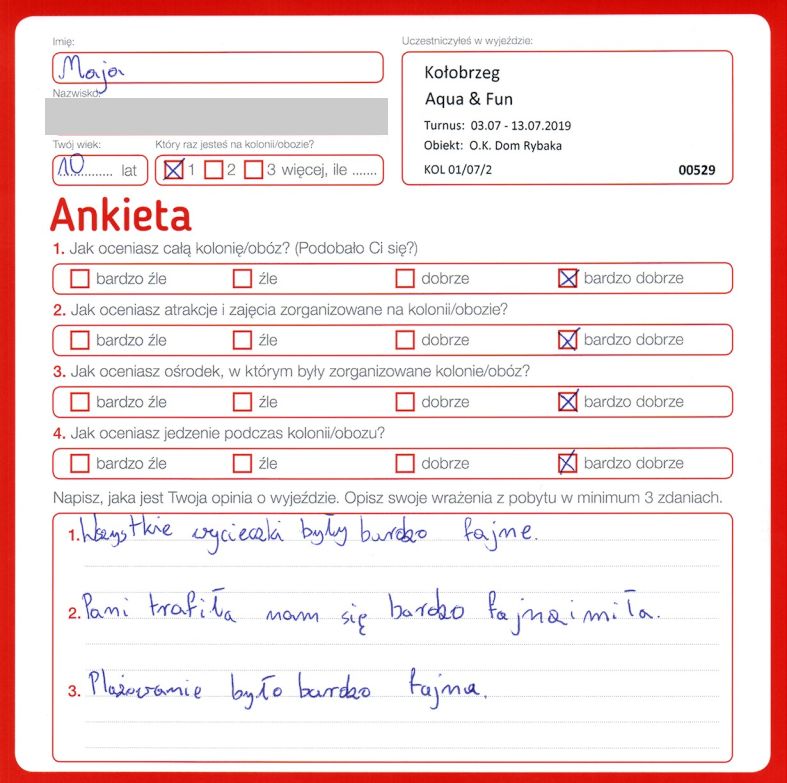 Imię:
Maja
Nazwisko:
Twój wiek:
10 lat
Który raz jesteś na kolonii/obozie?
1 2 3 więcej, ile .......
Uczestniczyłeś w wyjeździe:
Kołobrzeg
Aqua & Fun
Turnus: 03.07 - 13.07.2019
Obiekt: O.K. Dom Rybaka
KOL 01/07/2 00529
Ankieta
1. Jak oceniasz całą kolonię/obóz? (Podobało Ci się?)
bardzo źle źle dobrze bardzo dobrze
2. Jak oceniasz atrakcje i zajęcia zorganizowane na kolonii/obozie?
bardzo źle źle dobrze bardzo dobrze
3. Jak oceniasz ośrodek, w którym były zorganizowane kolonie/obóz?
bardzo źle źle dobrze bardzo dobrze
4. Jak oceniasz jedzenie podczas kolonii/obozu?
bardzo źle źle dobrze bardzo dobrze
Napisz, jaka jest Twoja opinia o wyjeździe. Opisz swoje wrażenia z pobytu w minimum 3 zdaniach.
1. Wszystkie wycieczki były bardzo fajne.
2. Pani trafiła nam się bardzo fajna i miła.
3. Plażowanie było bardzo fajne.